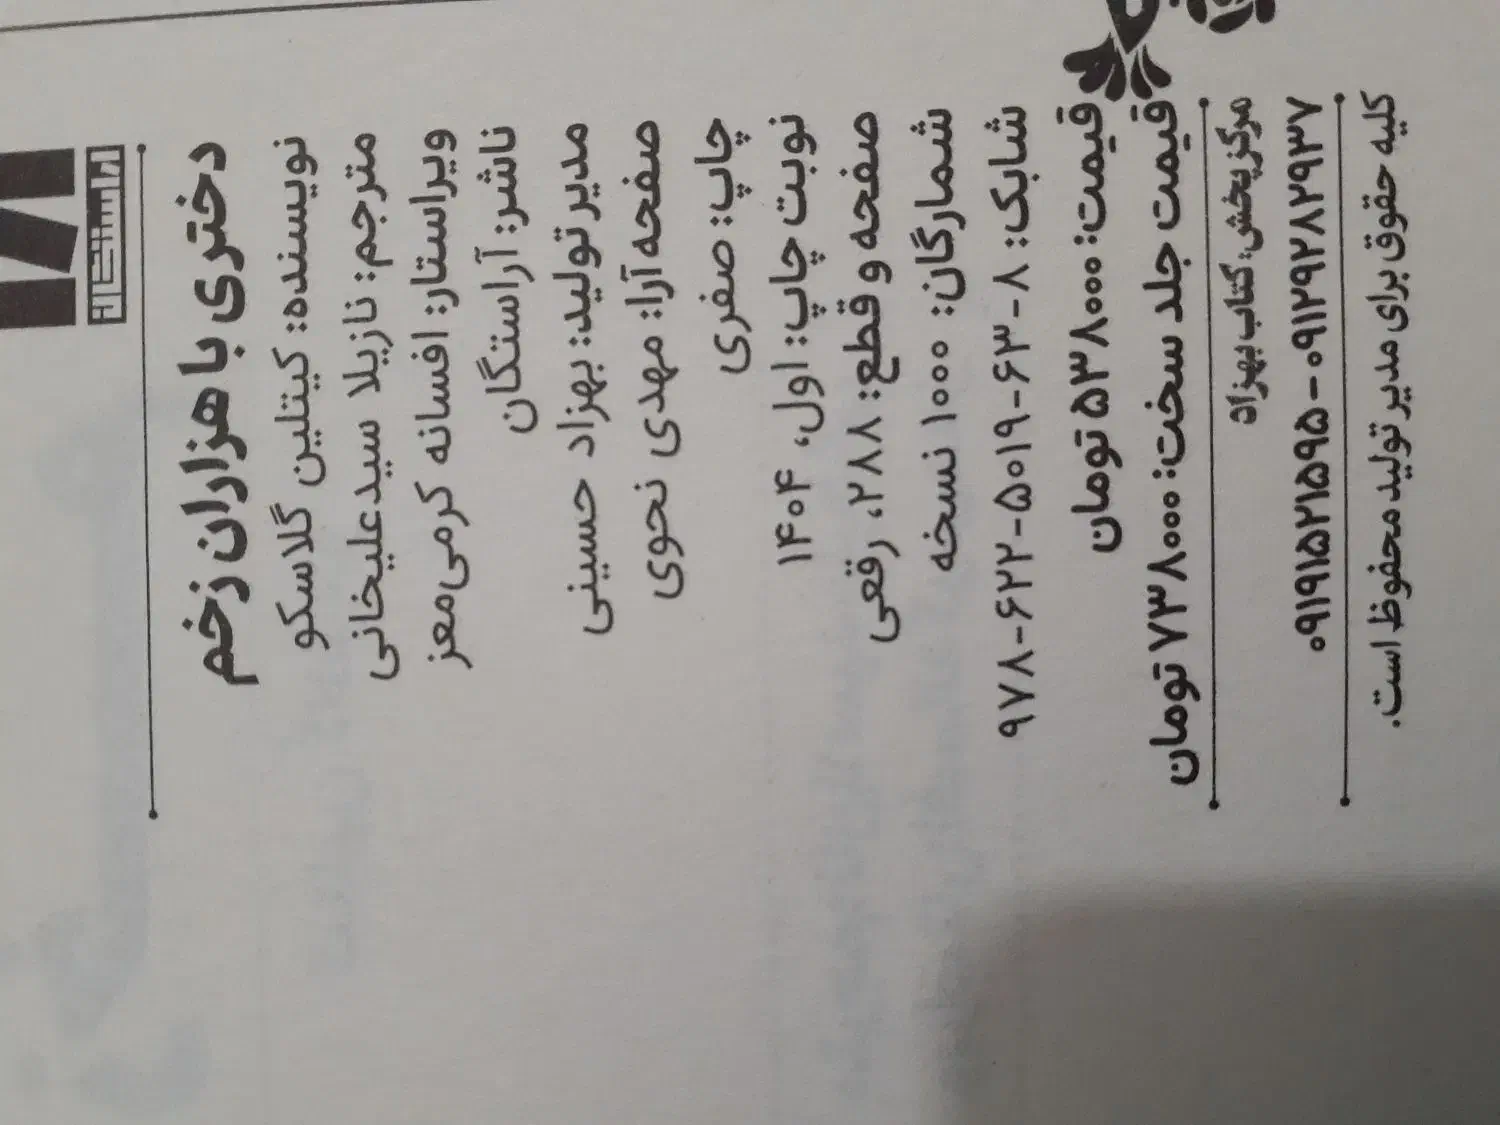 دختری با هزاران زخم
نویسنده: کیتلین گلاسکو
مترجم: نازیلا سیدعلیخانی
ویراستار: افسانه کرمی‌معز
ناشر: آراستگان
مدیر تولید: بهزاد حسینی
صفحه‌آرا: مهدی نحوی
چاپ: صفری
نوبت چاپ: اول، ۱۴۰۴
صفحه و قطع: ۲۸۸، رقعی
شمارگان: ۱۰۰۰ نسخه
شابک: ۸-۶۳-۵۰۱۹-۶۲۲-۹۷۸
قیمت: ۵۳۸۰۰۰ تومان
قیمت جلد سخت: ۷۳۸۰۰۰ تومان
مرکز پخش: کتاب بهزاد
۰۹۱۹۱۵۲۱۵۹۵-۰۹۱۲۹۲۸۲۹۳۷
کلیه حقوق برای مدیر تولید محفوظ است.